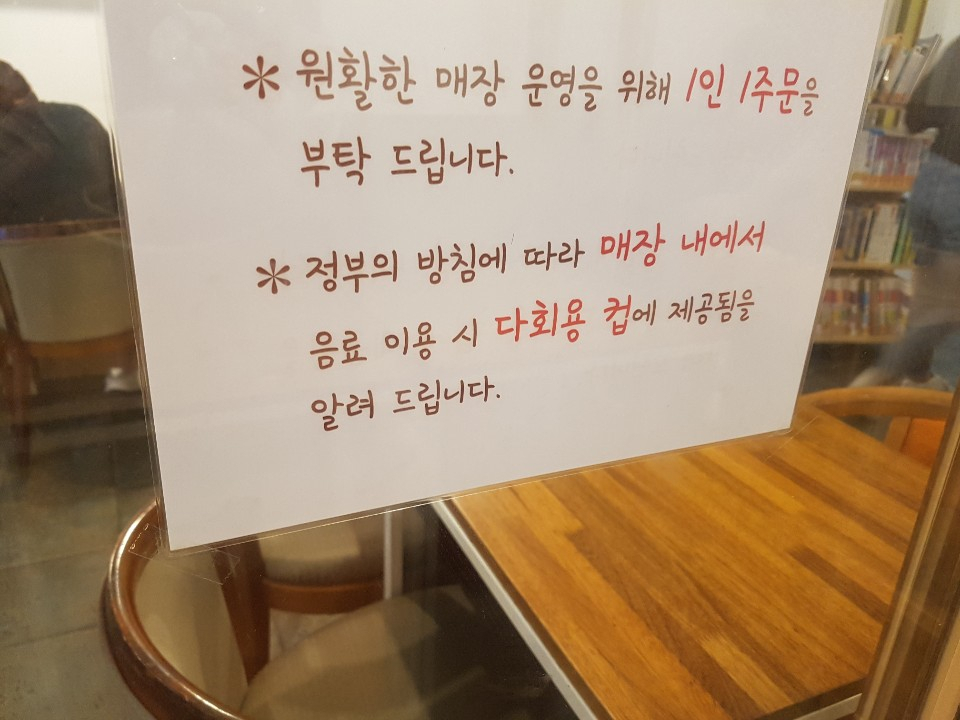 * 원활한 매장 운영을 위해 1인 1주문을
부탁 드립니다.
* 정부의 방침에 따라 매장 내에서
음료 이용 시 다회용 컵에 제공됨을
알려 드립니다.